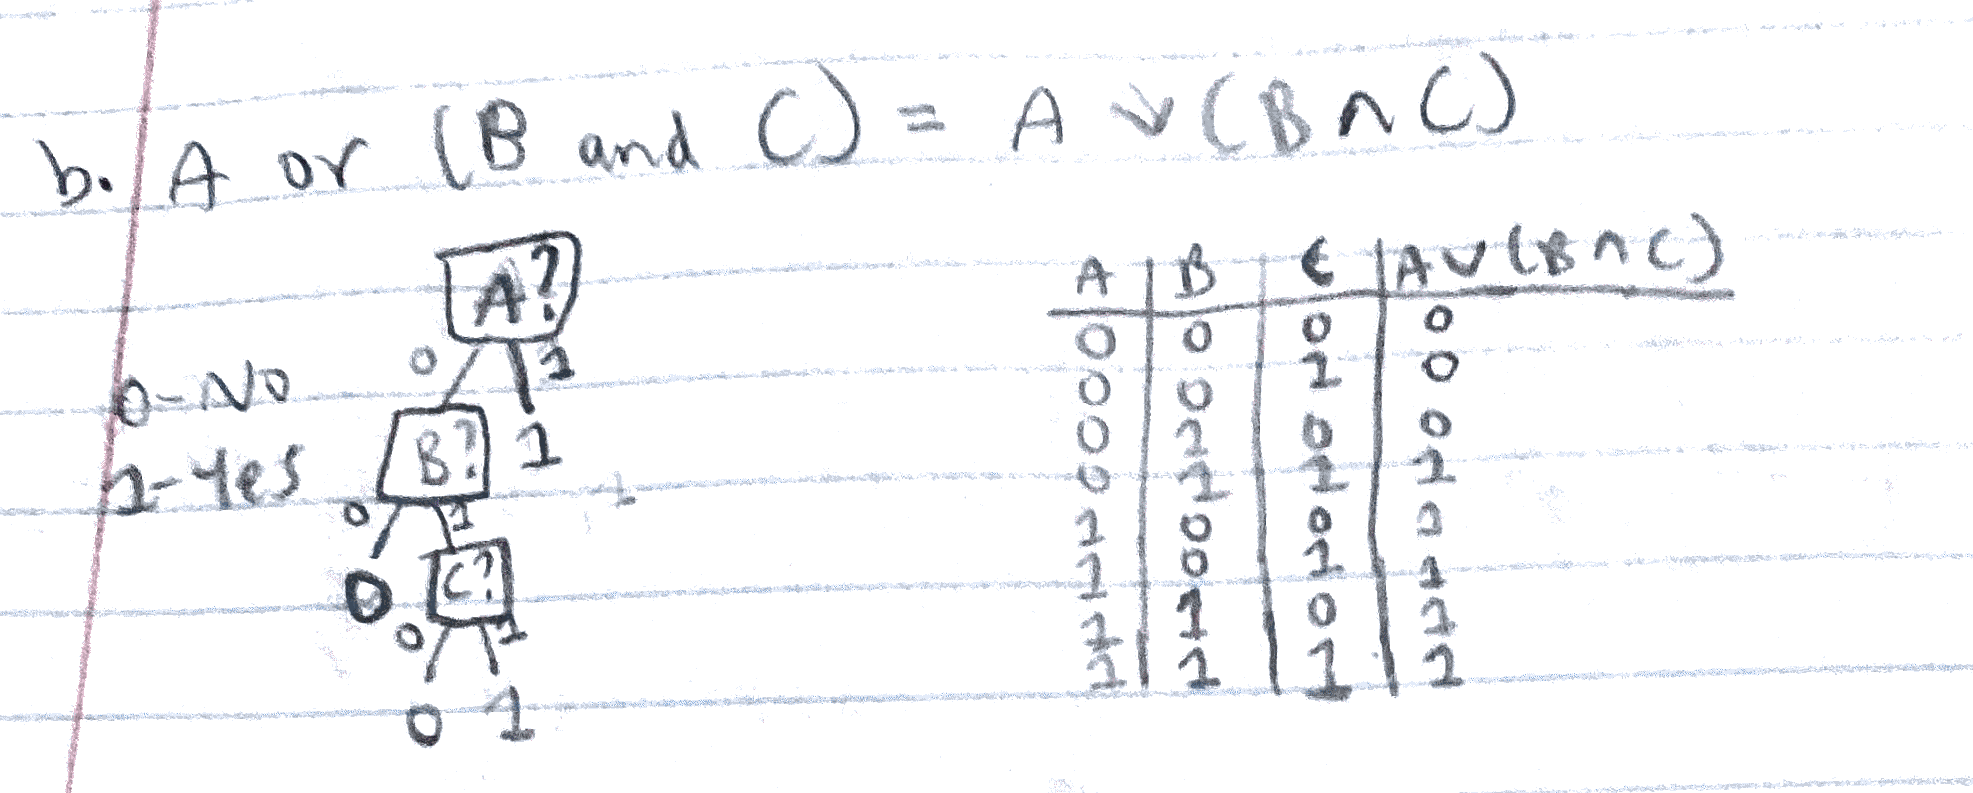 b. A or (B and C) = A ∨ (B ∩ C)
A?
0 1
0-No
B? 1
1-Yes
0 1
0 C?
0 1
0 1
A B C A ∨ (B ∩ C)
0 0 0 0
0 0 1 0
0 1 0 0
0 1 1 1
1 0 0 1
1 0 1 1
1 1 0 1
1 1 1 1